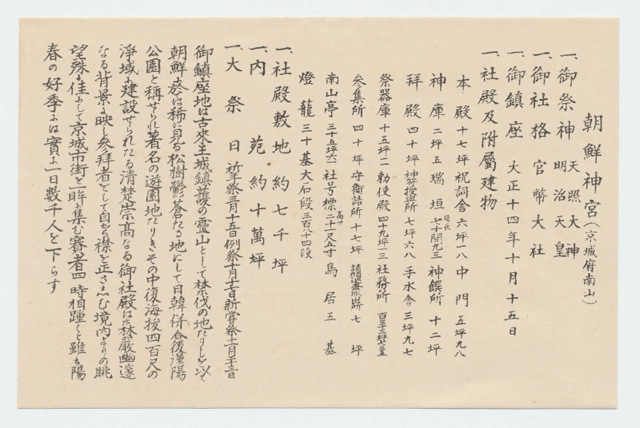 朝鮮神宮(京城府南山)
一、御祭神 天照大神 明治天皇
一、御社格 官幣大社
一、御鎮座 大正十四年十月十五日
一、社殿及附屬建物
本殿 十七坪 祝詞舎 六坪一八 中門 五坪九八
神庫 二坪五 瑞垣 延長七十間九三 神饌所 十二坪
拝殿 四十坪 神符授與所 七坪六八 手水舎 三坪九七
祭器庫 十五坪二一 勅使殿 四十九坪一三 社務所
参集所 四十坪 守衛詰所 十七坪 七坪
南山亭 三十五坪六二 社号標 高サ二十一尺五寸 鳥居 五基
燈籠 三十基 大石段 三百八十四段
一、社殿敷地 約七千坪
一、内苑 約十萬坪
一、大祭日 祈年祭三月十五日 例祭十月十七日 新嘗祭十一月二十三日
御鎮座地は古来王城鎮護の霊山として禁伐の地たりしを以て
朝鮮に於ては稀に見る松樹鬱蒼たる地にして日韓併合後漢陽
公園と称せられ著名の遊園地たりきその中復海抜四百尺の
浄域に建設せられたる清楚崇高なる御社殿は森厳幽邃
なる背景に映し参拝者をして自から襟を正さしむ境内よりの眺
望殊に佳にして京城市街を一眸に集む賽者四時相踵くと雖も陽
春の好季には實に一日数千人を下らす